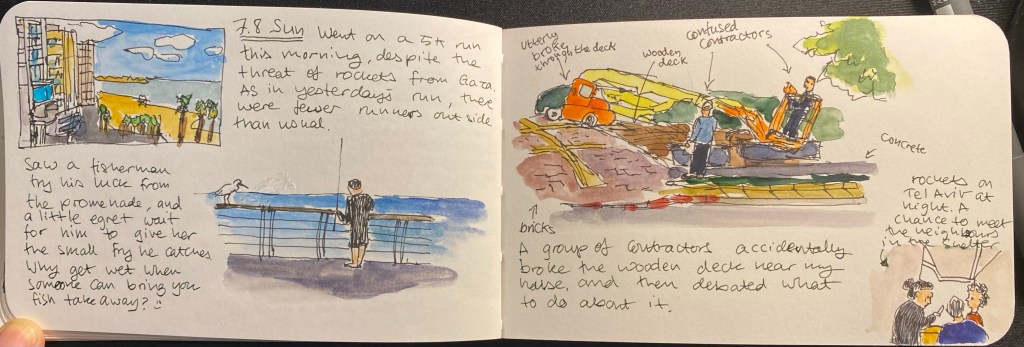 7.8 Sun Went on a 5k run
this morning, despite the
threat of rockets from Gaza.
As in yesterday's run, there
were fewer runners outside
than usual.
Saw a fisherman
try his luck from
the promenade, and
a little egret wait
for him to give her
the small fry he catches
Why get wet when
someone can bring you
fish take away? :)
Utterly
broke
through the deck
wooden
deck
confused
contractors
concrete
bricks
A group of contractors accidentally
broke the wooden deck near my
house, and then debated what
to do about it.
rockets on
Tel Aviv at
night. A
chance to meet
the neighbours
in the shelter